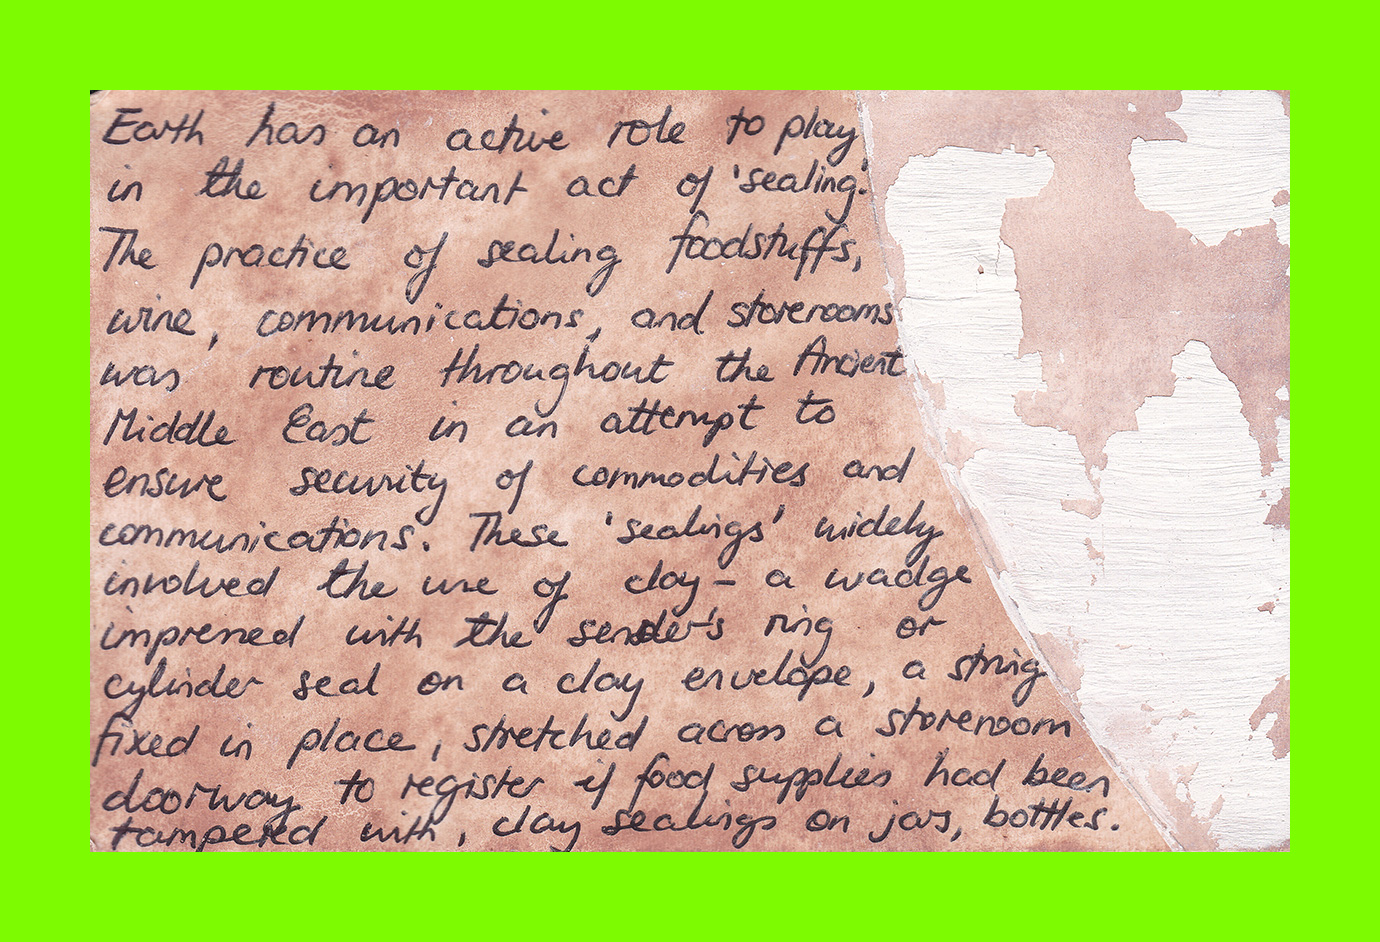 Earth has an active role to play
in the important act of 'sealing'.
The practice of sealing foodstuffs,
wine, communications, and storerooms
was routine throughout the Ancient
Middle East in an attempt to
ensure security of commodities and
communications. These 'sealings' widely
involved the use of clay – a wadge
impressed with the sender's ring or
cylinder seal on a clay envelope, a string
fixed in place, stretched across a storeroom
doorway to register if food supplies had been
tampered with, clay sealings on jars, bottles.